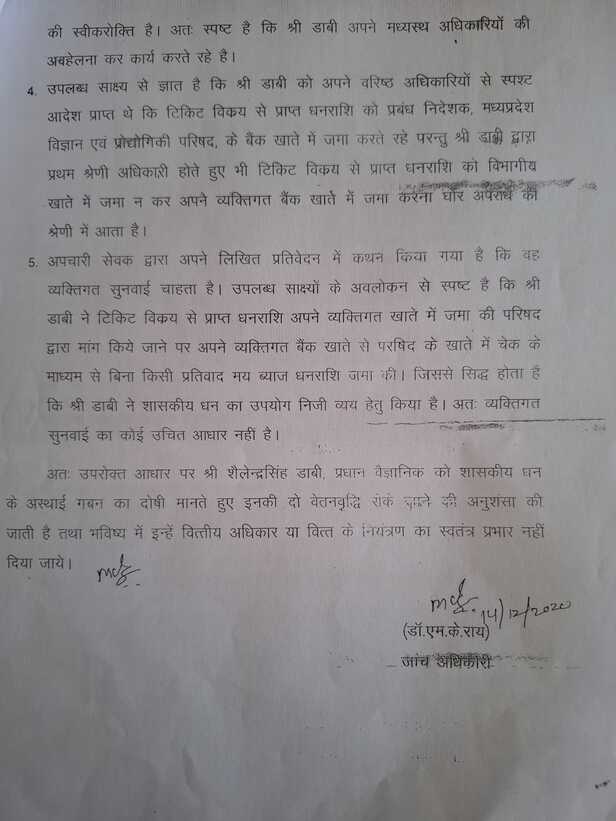 की स्वीकरोक्ति है। अतः स्पष्ट है कि श्री डाबी अपने मध्यस्थ अधिकारियों की
अवहेलना कर कार्य करते रहे है।
4. उपलब्ध साक्ष्य से ज्ञात है कि श्री डाबी को अपने वरिष्ठ अधिकारियों से स्पश्ट
आदेश प्राप्त थे कि टिकिट विकय से प्राप्त धनराशि को प्रबंध निदेशक, मध्यप्रदेश
विज्ञान एवं प्रोद्योगिकी परिषद, के बैंक खाते में जमा करते रहे परन्तु श्री डाबी द्वारा
प्रथम श्रेणी अधिकारी होते हुए भी टिकिट विकय से प्राप्त धनराशि को विभागीय
खाते में जमा न कर अपने व्यक्तिगत बैंक खाते में जमा करना घोर अपराध की
श्रेणी में आता है।
5. अपचारी सेवक द्वारा अपने लिखित प्रतिवेदन में कथन किया गया है कि वह
व्यक्तिगत सुनवाई चाहता है। उपलब्ध साक्ष्यों के अवलोकन से स्पष्ट है कि श्री
डाबी ने टिकिट विकय से प्राप्त धनराशि अपने व्यक्तिगत खाते में जमा की परिषद
द्वारा मांग किये जाने पर अपने व्यक्तिगत बैंक खाते से परषिद के खाते में चेक के
माध्यम से बिना किसी प्रतिवाद मय ब्याज धनराशि जमा की। जिससे सिद्ध होता है
कि श्री डाबी ने शासकीय धन का उपयोग निजी व्यय हेतु किया है। अतः व्यक्तिगत
सुनवाई का कोई उचित आधार नहीं है।
अतः उपरोक्त आधार पर श्री शैलेन्द्रसिंह डाबी, प्रधान वैज्ञानिक को शासकीय धन
के अस्थाई गबन का दोषी मानते हुए इनकी दो वेतनवृद्धि रोके जाने की अनुशंसा की
जाती है तथा भविष्य में इन्हें वित्तीय अधिकार या वित्त के नियंत्रण का स्वतंत्र प्रभार नहीं
दिया जाये।
14/12/2020
(डॉ.एम.के.राय)
जांच अधिकारी